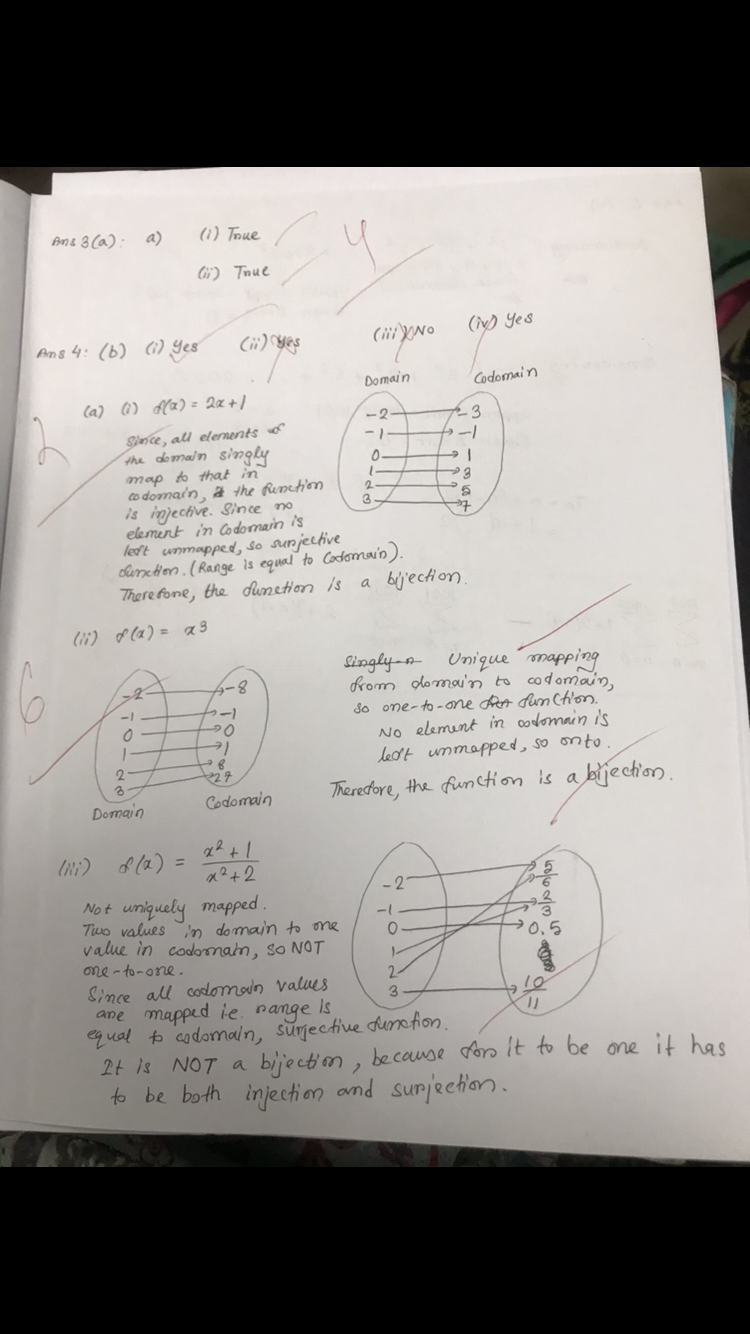 Ans 3(a): a) (i) True
4
(ii) True
Ans 4: (b) (i) Yes (ii) Yes (iii) No (iv) Yes
2
(a) (i) f(x) = 2x+1
Domain Codomain
-2 -3
-1 -1
0 1
1 3
2 5
3 7
Since, all elements of
the domain singly
map to that in
codomain, the function
is injective. Since no
element in codomain is
left unmapped, so surjective
function. (Range is equal to Codomain).
Therefore, the function is a bijection.
(ii) f(x) = x3
6
-2 -8
-1 -1
0 0
1 1
2 8
3 27
Domain Codomain
Singly Unique mapping
from domain to codomain,
so one-to-one function.
No element in codomain is
left unmapped, so onto.
Therefore, the function is a bijection.
(iii) f(x) = x2 + 1
x2 + 2
Not uniquely mapped.
Two values in domain to one
value in codomain, so NOT
one-to-one.
Since all codomain values
are mapped i.e. range is
equal to codomain, surjective function.
-2 5/6
-1 2/3
0 0.5
1
2
3 10/11
It is NOT a bijection, because for it to be one it has
to be both injection and surjection.